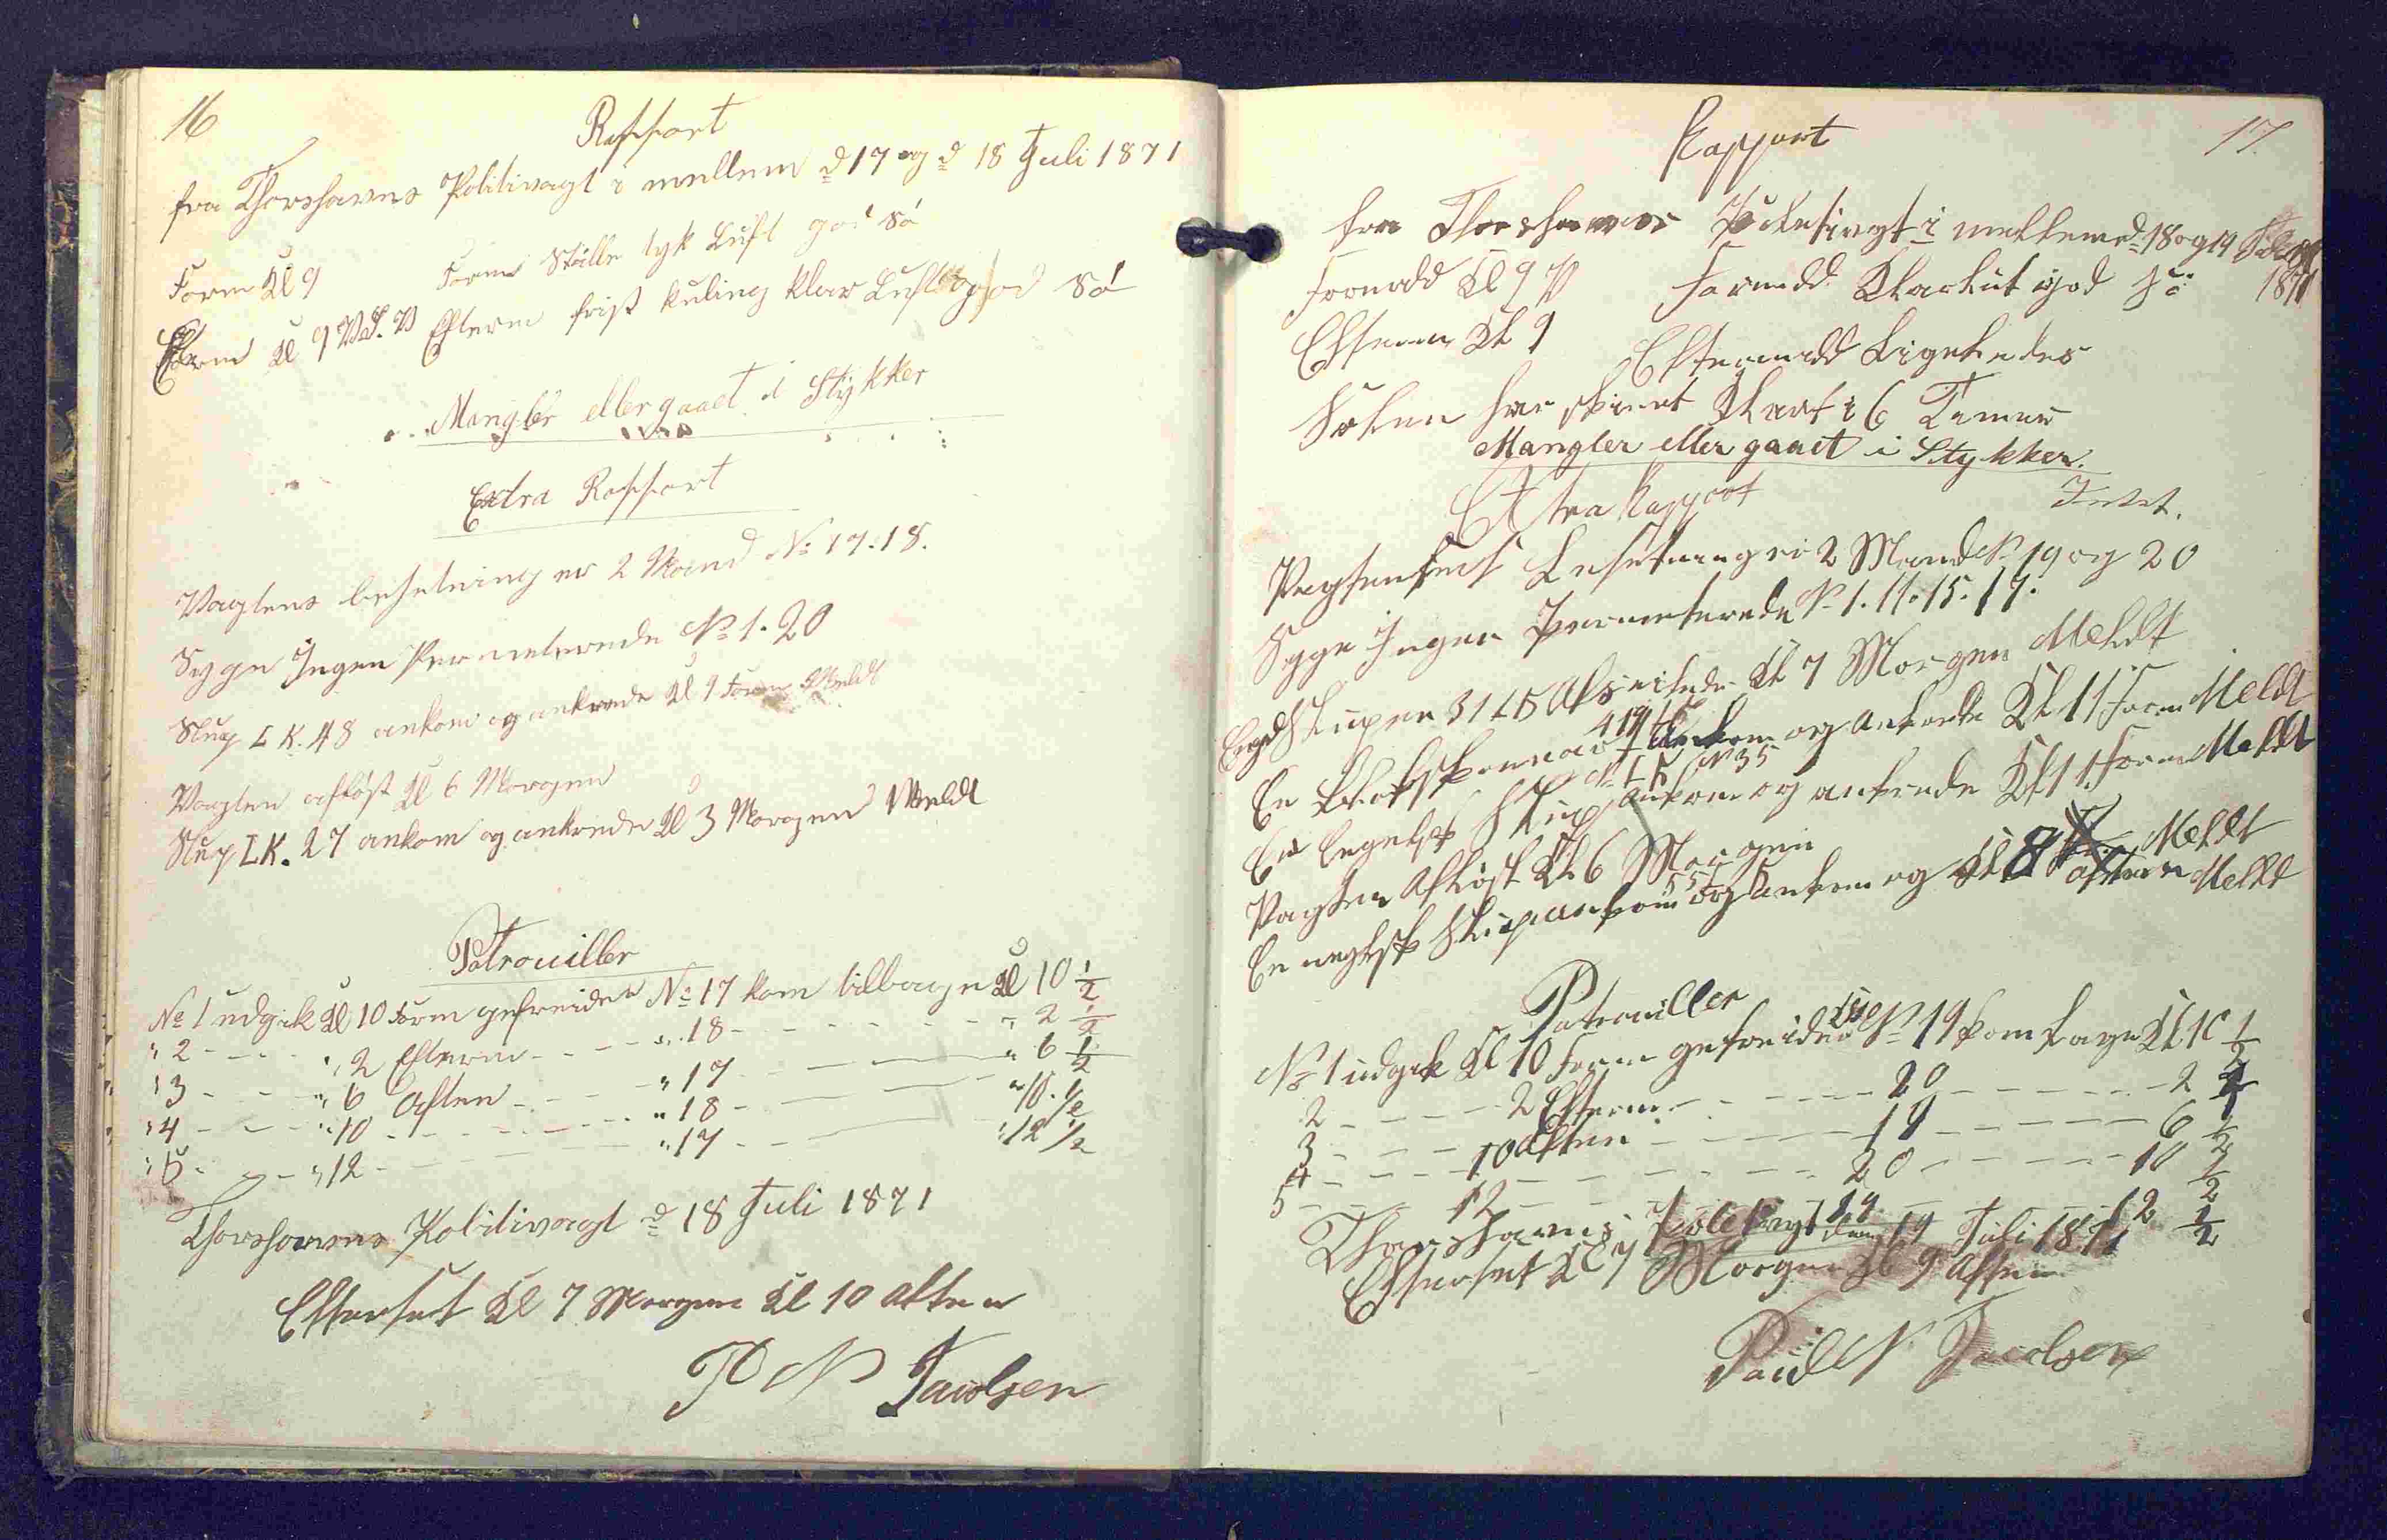 16
Rapport
fra Thorshavns Politivagt i mellem d 17 og d 18 Juli 1871
Form Kl 9 Form Stille tyk Luft god Sö
Efterm Kl 9 V.S.V Efterm frisk Kuling klar Luft og god Sö
Mangler eller gaaet i Stykker
Extra Rapport
Vagtens besetning er 2 Mand No 17.18.
Syge Ingen Permeterede No 1.20
Slup L K. 48 ankom og ankrede Kl 9 Form Meldt
Vagten aflöst Kl 6 Morgen
Slup LK. 27 ankom og ankrede Kl 3 Morgen Meldt
Patrouiller
No 1 udgik Kl 10 Form gefreider No 17 kom tilbage Kl 10 1/2
" 2 - - - " 2 Efterm - - - " 18 - - - " 2 1/2
" 3 - - - " 6 Aften - - - " 17 - - - " 6 1/2
" 4 - - - " 10 - - - " 18 - - - " 10. 1/2
" 5 - - - " 12 - - - " 17 - - - " 12 1/2
Thorshavns Politivagt d 18 Juli 1871
Efterset Kl 7 Morgen Kl 10 Aften
P N Jacobsen
17.
Rapport
fra Thorshavns i mellem d 18 og 19 Juli
1871
Formdd Kl 9 Formdd Klarluft god Sö
Efterm Kl 9 Eftermidd Ligeledes
Solen har skint Klart i 6 Timer
Mangler eller gaaet i Stykker.
Extra Rapport Intet.
Besetning er 2 Mand No 19 og 20
Syge Ingen Permeterede No 1. 11. 15. 17.
Slupen 31 LK Afseilede Kl 7 Morgen Meldt
419
En ankom og ankrede Kl 11 Form Meldt
No LK No 35
En Engelsk Slup ankom og ankrede Kl 11 Form Meldt
Vagten Aflöst Kl 6 Morgen Meldt
En Slup ankom og ankom og Kl 8 aften Meldt
Patrouiller
No 1 udgik Kl 10 Form gefreider No 19 kom Kl 10 1/2
2 - - - 2 Efterm - - - 20 - - - 2 1/2
3 - - - Aften - - - 19 - - - 6 1/2
4 - - - 10 - - - 20 - - - 10 1/2
5 - - - 12 - - - 19 - - - 12 1/2
Thorshavns den 19 Juli 1871
Efterset Kl 7 Morgen Kl 9 Aften
Poul N. Jacobsen